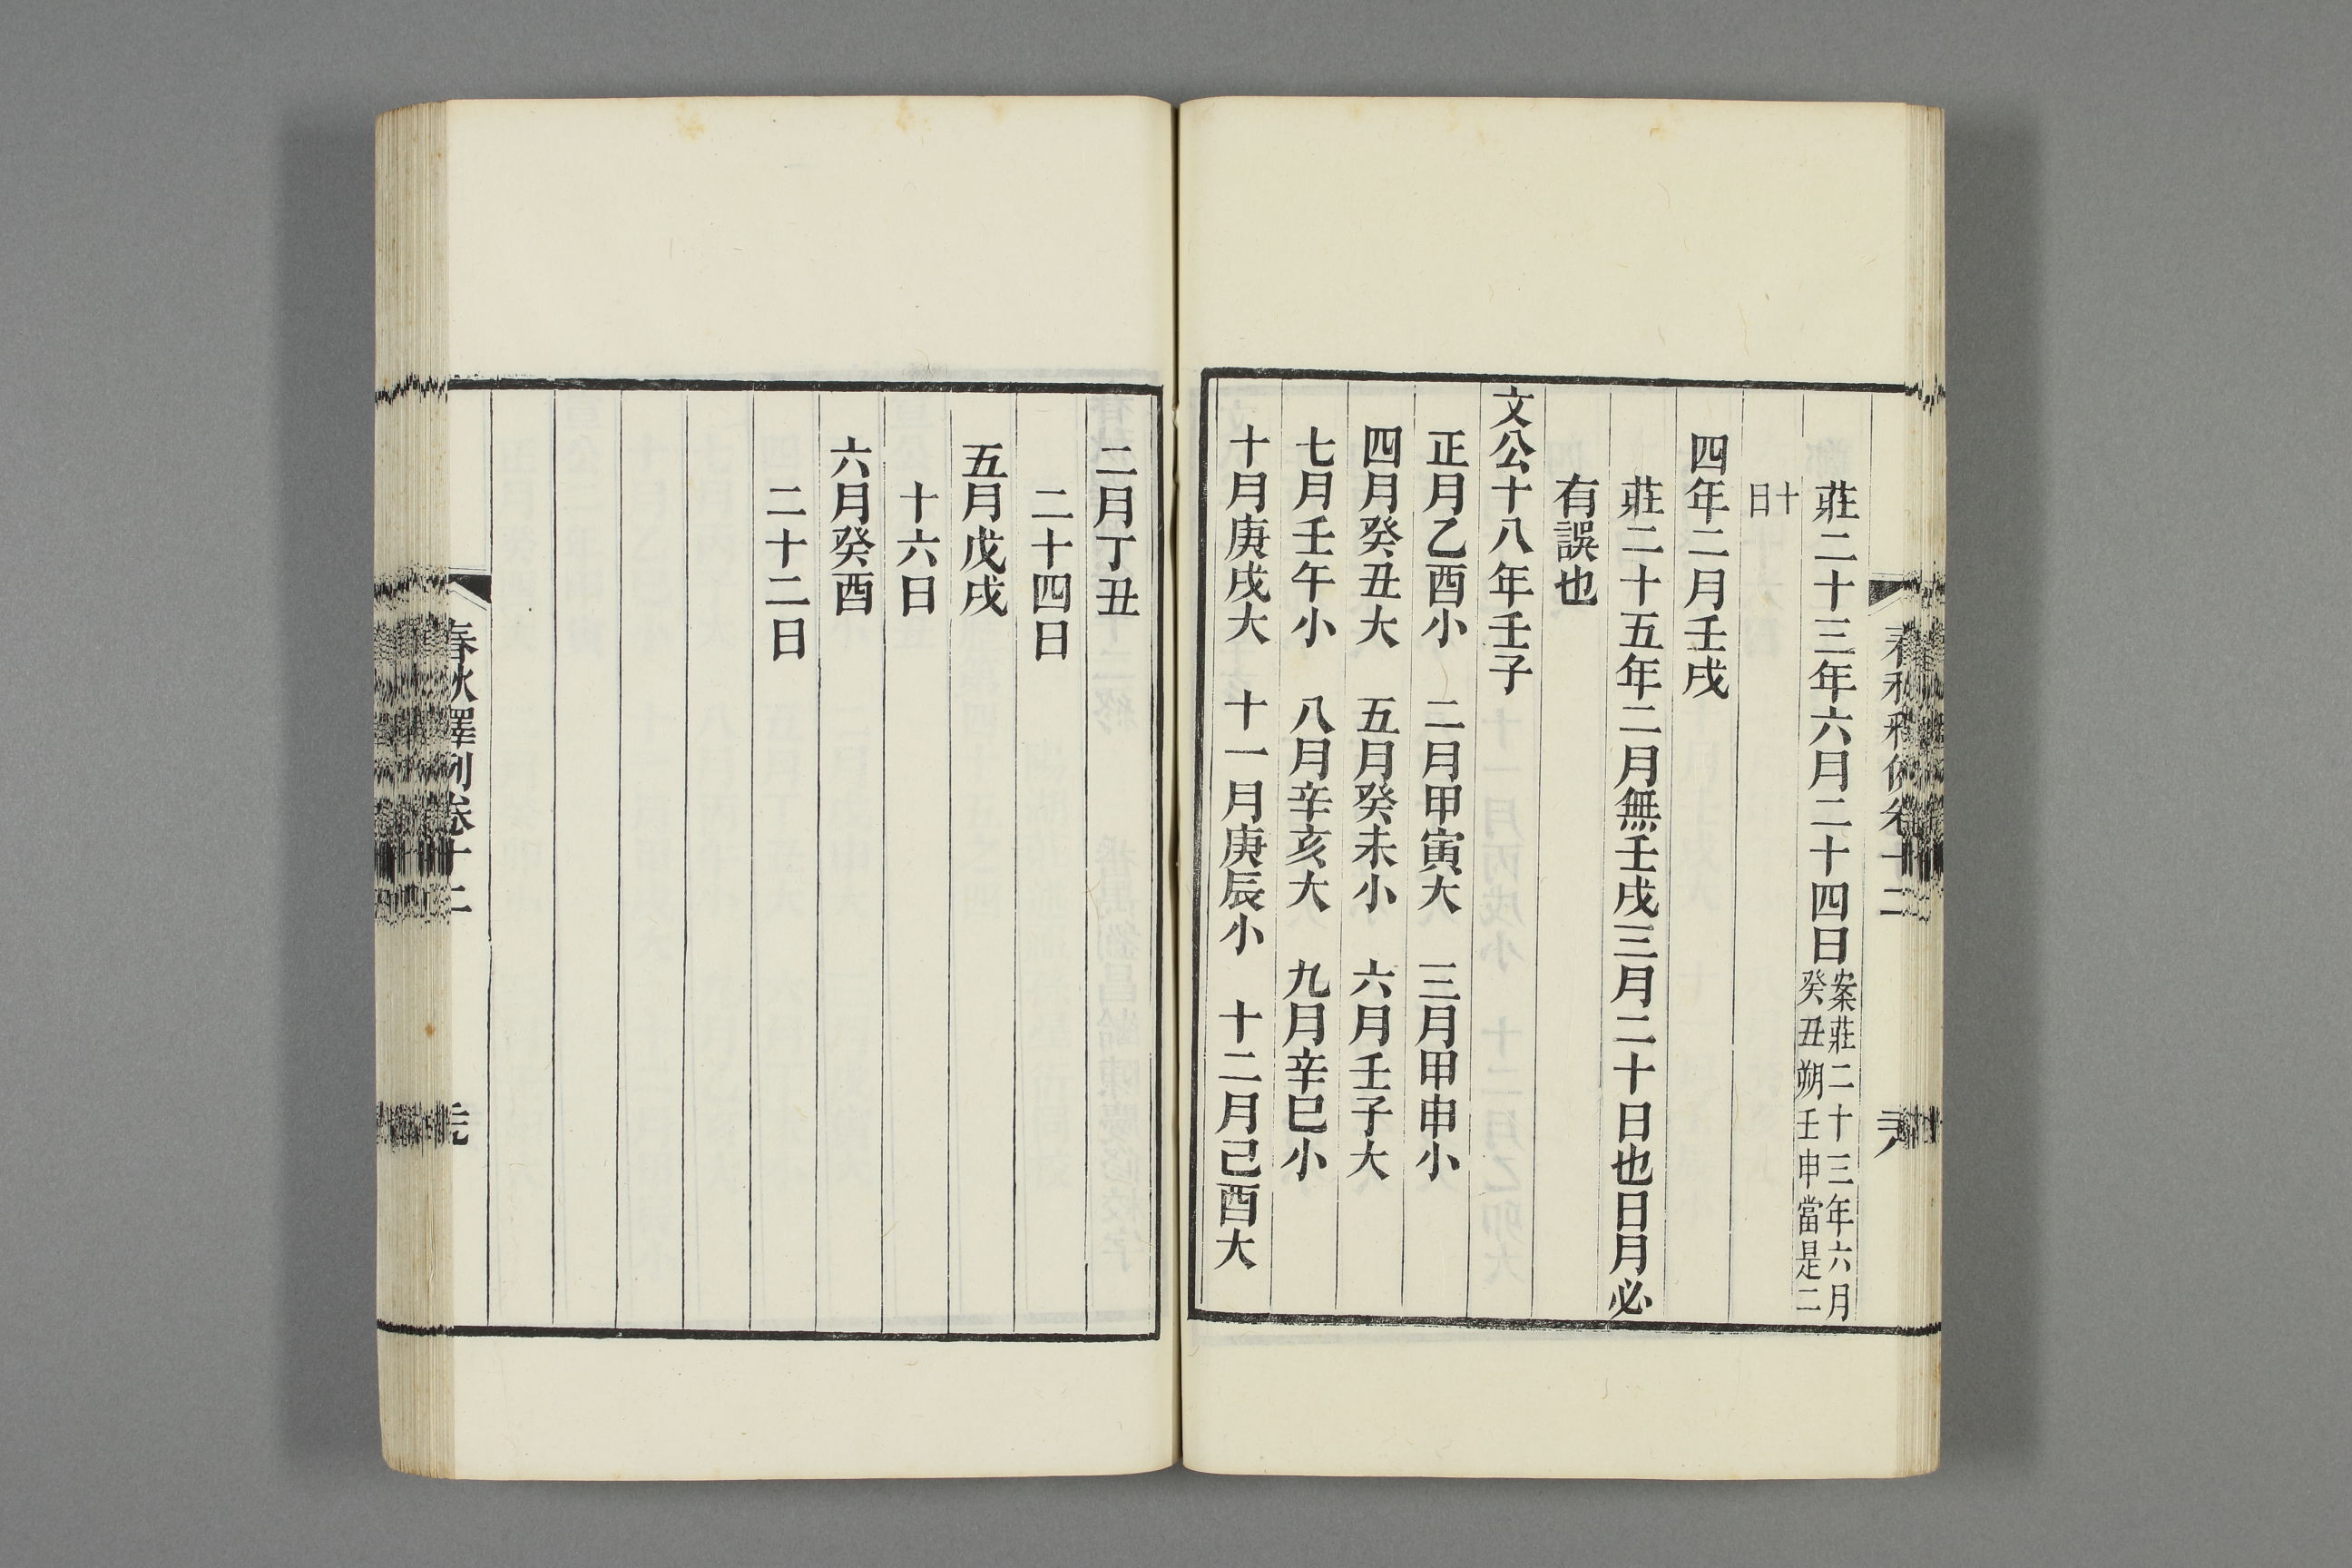 莊二十三年六月二十四日案莊二十三年六月癸丑朔壬申當是二
十日
四年二月壬戌
莊二十五年二月無壬戌三月二十日也日月必
有誤也
文公十八年壬子
正月乙酉小 二月甲寅大 三月甲申小
四月癸丑大 五月癸未小 六月壬子大
七月壬午小 八月辛亥大 九月辛巳小
十月庚戌大 十一月庚辰小 十二月己酉大
二月丁丑
二十四日
五月戊戌
十六日
六月癸酉
二十二日
春秋釋例卷十二